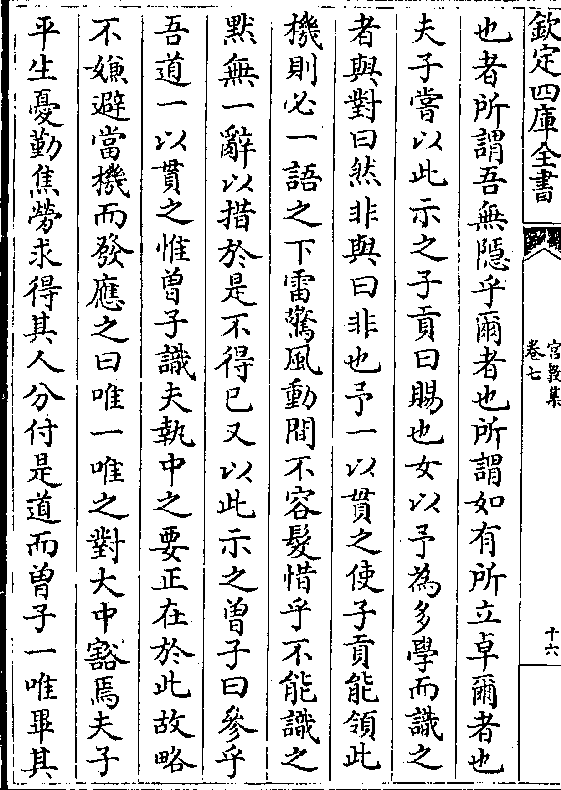 欽定四庫全書
宮教集
卷七
十六
也者所謂吾無隱乎爾者也所謂如有所立卓爾者也
夫子嘗以此示之子貢曰賜也女以予為多學而識之
者與對曰然非與曰非也予一以貫之使子貢能領此
機則必一語之下雷驚風動間不容髮惜乎不能識之
黙無一辭以措於是不得已又以此示之曾子曰參乎
吾道一以貫之惟曾子識夫執中之要正在於此故略
不嫌避當機而發應之曰唯一唯之對大中豁焉夫子
平生憂勤焦勞求得其人分付是道而曾子一唯畢其